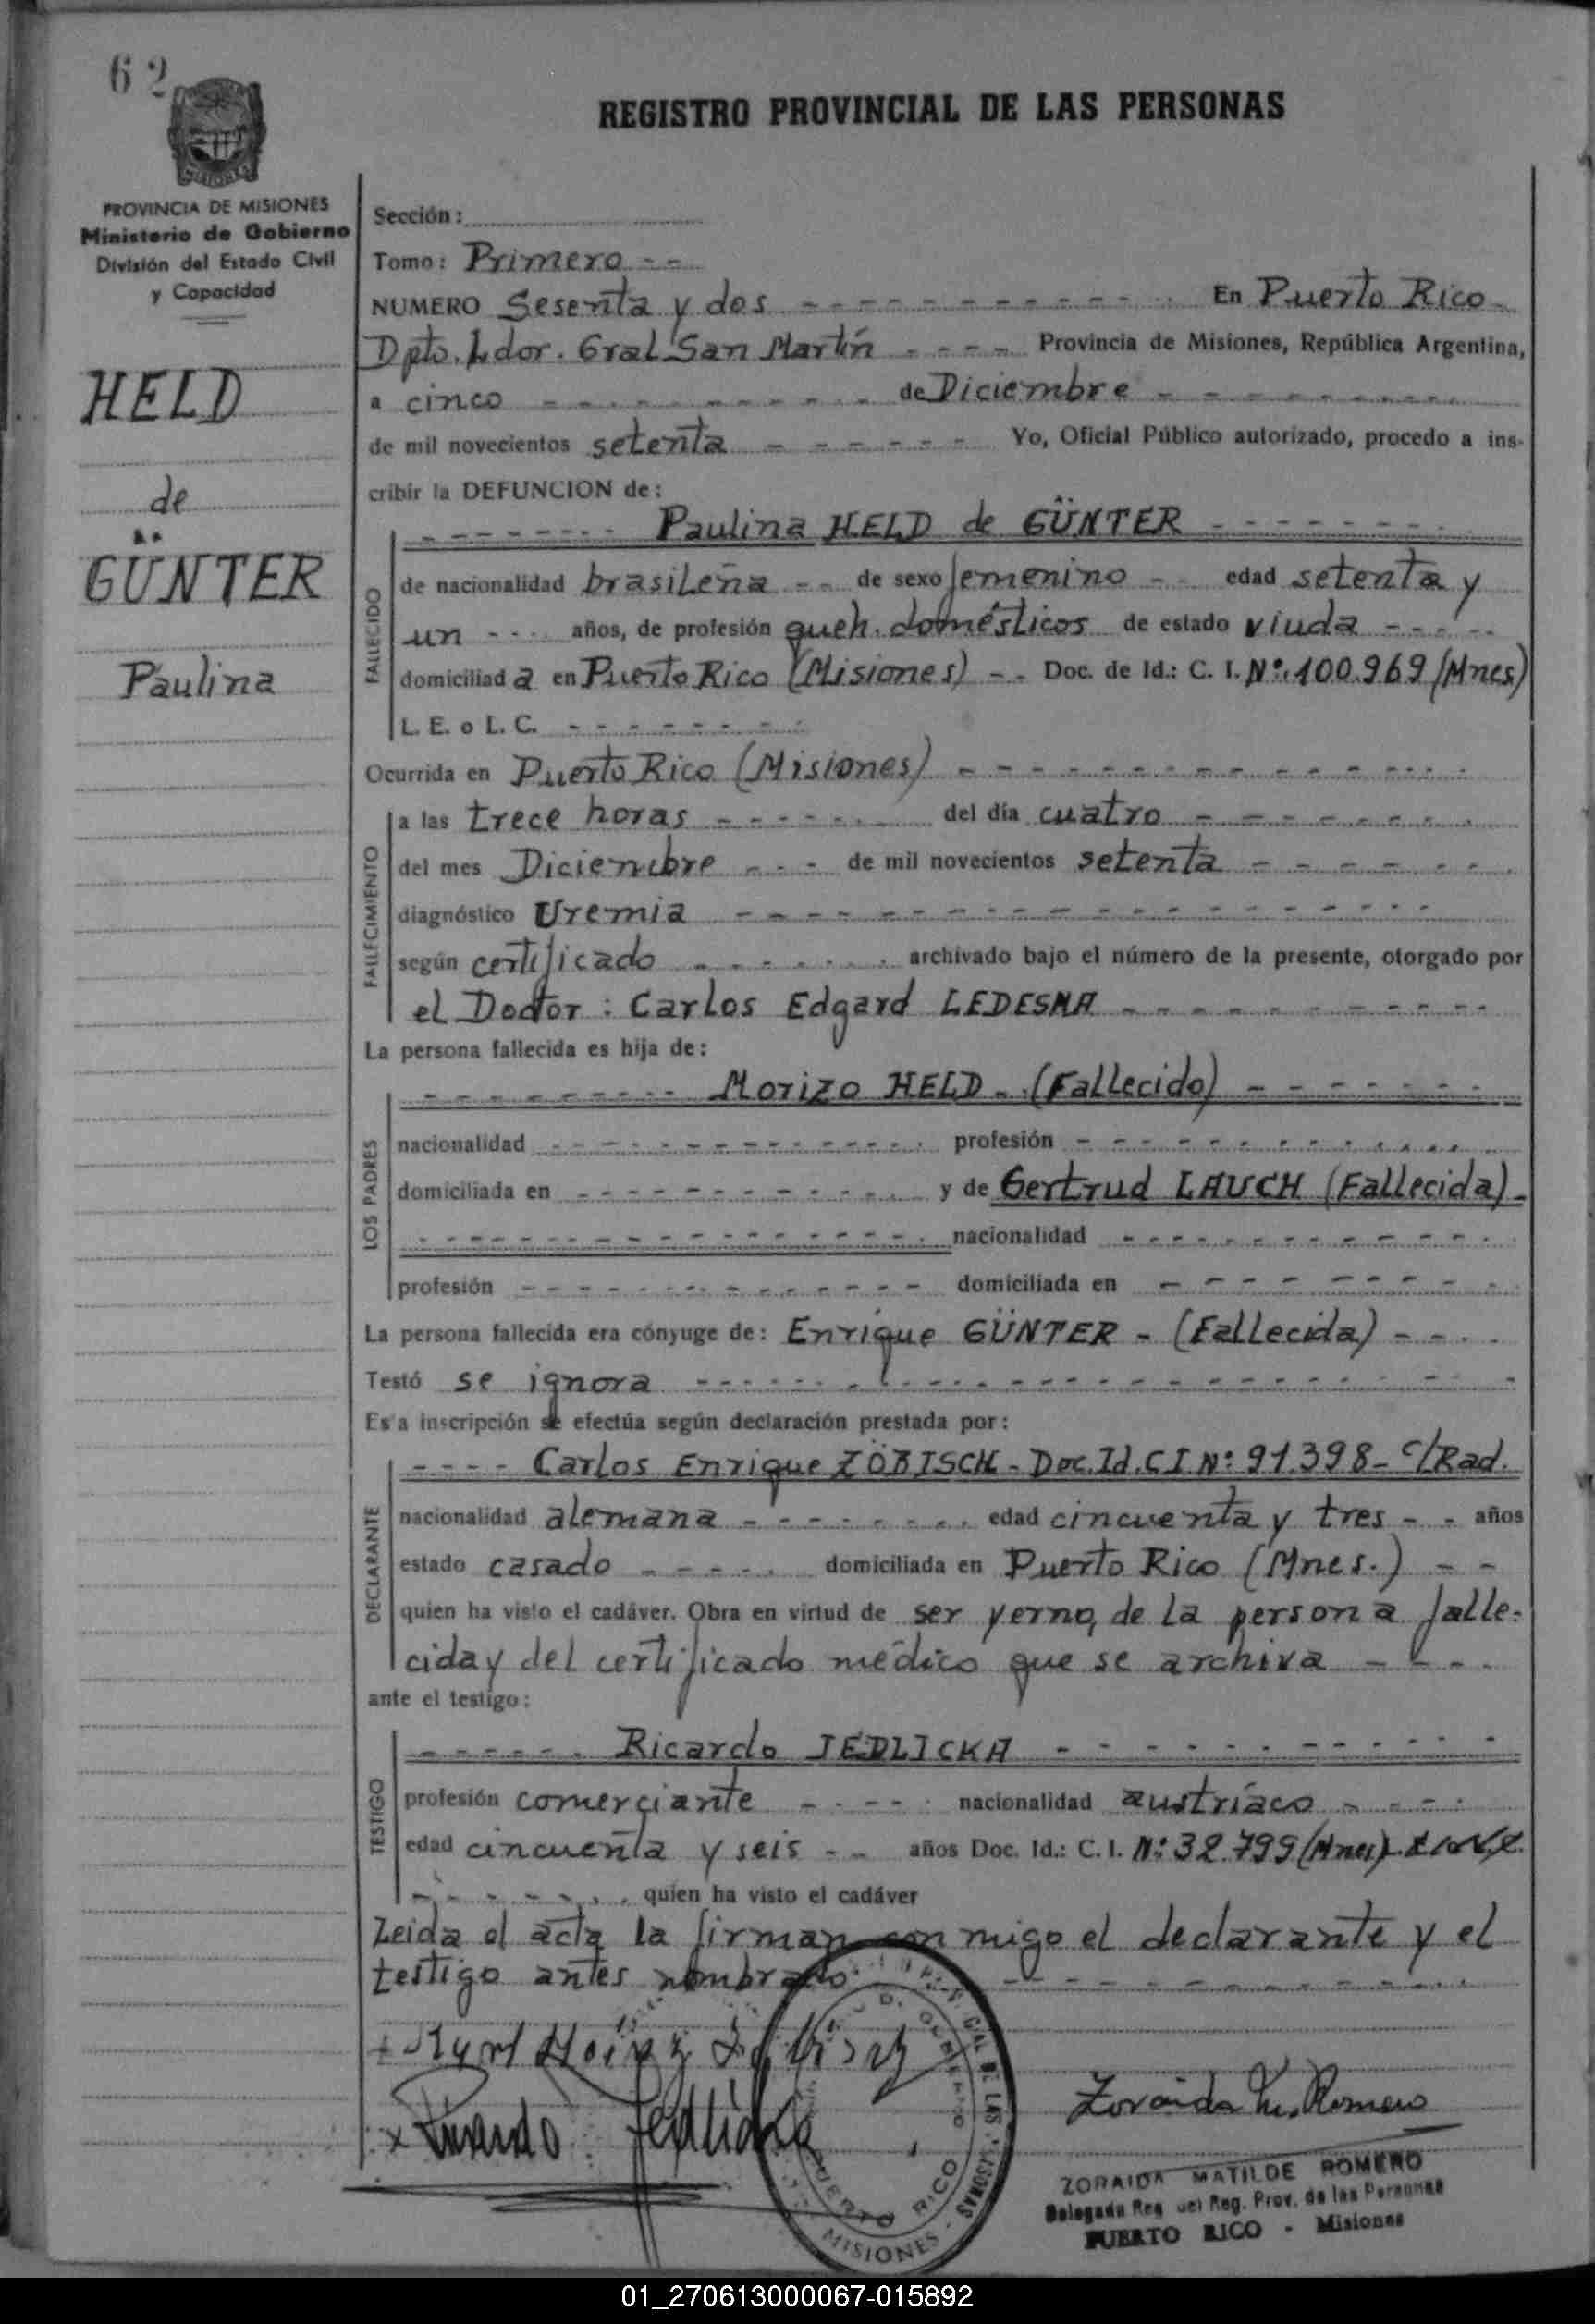 62
REGISTRO PROVINCIAL DE LAS PERSONAS
MISIONES
PROVINCIA DE MISIONES
Ministerio de Gobierno
División del Estado Civil
y Capacidad
HELD
de
GÜNTER
Paulina
Sección:
Tomo: Primero - -
NUMERO Sesenta y dos - - - - - - - - - - - En Puerto Rico -
Dpto. Ldor. Gral San Martín - - - - Provincia de Misiones, República Argentina,
a cinco - - - - - - - - - - - de Diciembre - - - - - - - - -
de mil novecientos setenta - - - - - - Yo, Oficial Público autorizado, procedo a ins-
cribir la DEFUNCION de:
FALLECIDO
- - - - - - - Paulina HELD de GÜNTER - - - - - - - -
de nacionalidad brasileña - - de sexo femenino - - edad setenta y
un - - - años, de profesión queh. domésticos de estado viuda - - - - -
domiciliada en Puerto Rico (Misiones) - - Doc. de Id.: C. I. Nº: 100.969 (Mnes)
L. E. o L. C. - - - - - - - - -
Ocurrida en Puerto Rico (Misiones) - - - - - - - - - - - - - -
FALLECIMIENTO
a las trece horas - - - - - - - del día cuatro - - - - - - - -
del mes Diciembre - - - de mil novecientos setenta - - - - - - -
diagnóstico Uremia - - - - - - - - - - - - - - - - - - - -
según certificado - - - - - - - archivado bajo el número de la presente, otorgado por
el Doctor : Carlos Edgard LEDESMA - - - - - - - - - - -
La persona fallecida es hija de:
LOS PADRES
- - - - - - - - - Morizo HELD - (Fallecido) - - - - - - -
nacionalidad - - - - - - - - - - - - - profesión - - - - - - - - - - - - -
domiciliada en - - - - - - - - - - - - y de Gertrud LAUCH (Fallecida) -
- - - - - - - - - - - - - - - - - - nacionalidad - - - - - - - - - - - -
profesión - - - - - - - - - - - - - domiciliada en - - - - - - - - -
La persona fallecida era cónyuge de: Enrique GÜNTER - (Fallecida) - - - -
Testó se ignora - - - - - - - - - - - - - - - - - - - - - -
Esta inscripción se efectúa según declaración prestada por:
DECLARANTE
- - - - Carlos Enrique ZÖBISCH - Doc. Id. C I Nº: 91.398 - c/Rad.
nacionalidad alemana - - - - - - - - edad cincuenta y tres - - años
estado casado - - - - - domiciliada en Puerto Rico (Mnes.) - -
quien ha visto el cadáver. Obra en virtud de ser yerno, de la persona falle-
cida y del certificado médico que se archiva - - - -
ante el testigo:
TESTIGO
- - - - - - Ricardo JEDLICKA - - - - - - - - - - - -
profesión comerciante - - - - - nacionalidad austríaco - - - - -
edad cincuenta y seis - - años Doc. Id.: C. I. Nº: 32.799 (Mnes)
- - - - - - - - quien ha visto el cadáver
Leida el acta la firman con migo el declarante y el
testigo antes nombrado - - - - - - - - - - - - -
Ricardo Jedlicka
PUERTO RICO
MISIONES
Zoraida M. Romero
ZORAIDA MATILDE ROMERO
Delegada Reg. del Reg. Prov. de las Personas
PUERTO RICO - Misiones
01_270613000067-015892